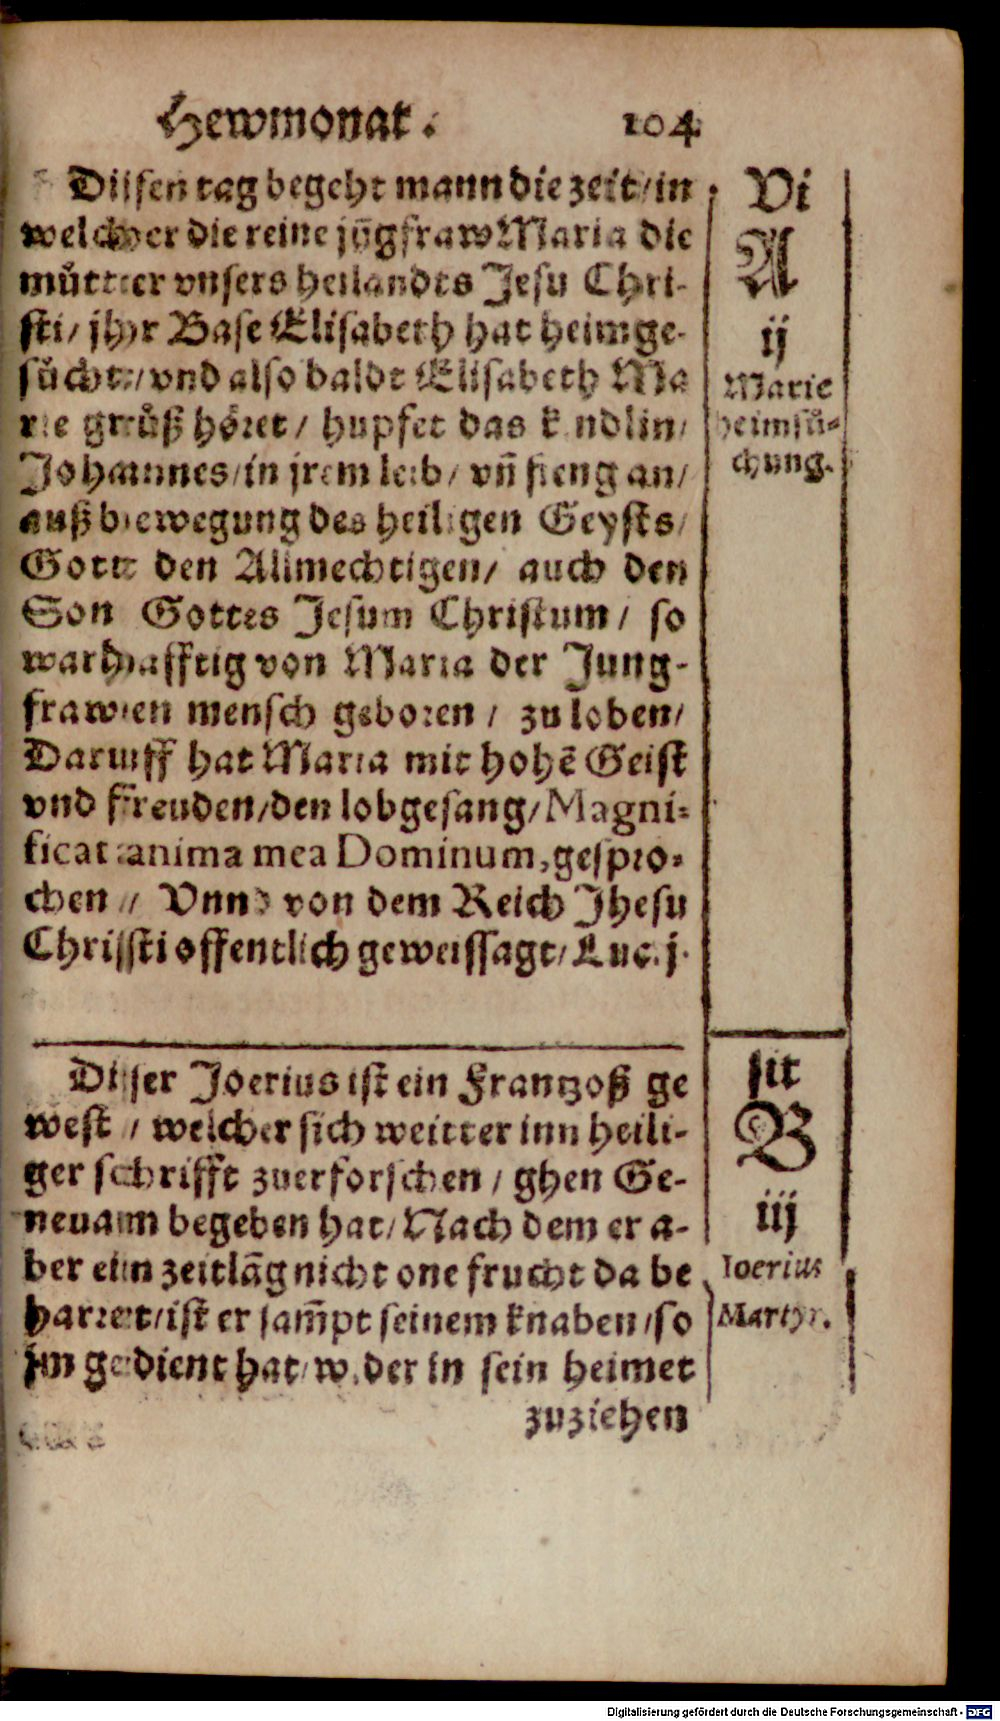 Hewmonat. 104
Disen tag begeht mann die zeit/in
welcher die reine jūgfraw Maria die
mütter vnsers heilandts Jesu Chri-
sti/ jhr Base Elisabeth hat heimge-
suͦcht/vnd also baldt Elisabeth Ma
rie gruͦß hoͤret/ hupfet das kindlin/
Johannes/in jrem leib/ vn̄ fieng an/
auß bewegung des heiligen Geysts/
Gott den Allmechtigen/ auch den
Son Gottes Jesum Christum/ so
warhafftig von Maria der Jung-
frawen mensch geboren/ zu loben/
Daruff hat Maria mit hohē Geist
vnd freuden/den lobgesang/Magni-
ficat anima mea Dominum, gespro-
chen/ Vnnd von dem Reich Jhesu
Christi offentlich geweissagt/Luc.j.
Vi
A
ij
Marie
heimsuͦ-
chung.
Diser Joerius ist ein Frantzoß ge
west/ welcher sich weitter inn heili-
ger schrifft zuerforschen/ ghen Ge-
neuam begeben hat/Nach dem er a-
ber ein zeitlāg nicht one frucht da be
harret/ist er sam̄pt seinem knaben/so
jm gedient hat/wider in sein heimet
zuziehen
sit
B
iij
Ioerius
Martyr.
Digitalisierung gefördert durch die Deutsche Forschungsgemeinschaft - DFG